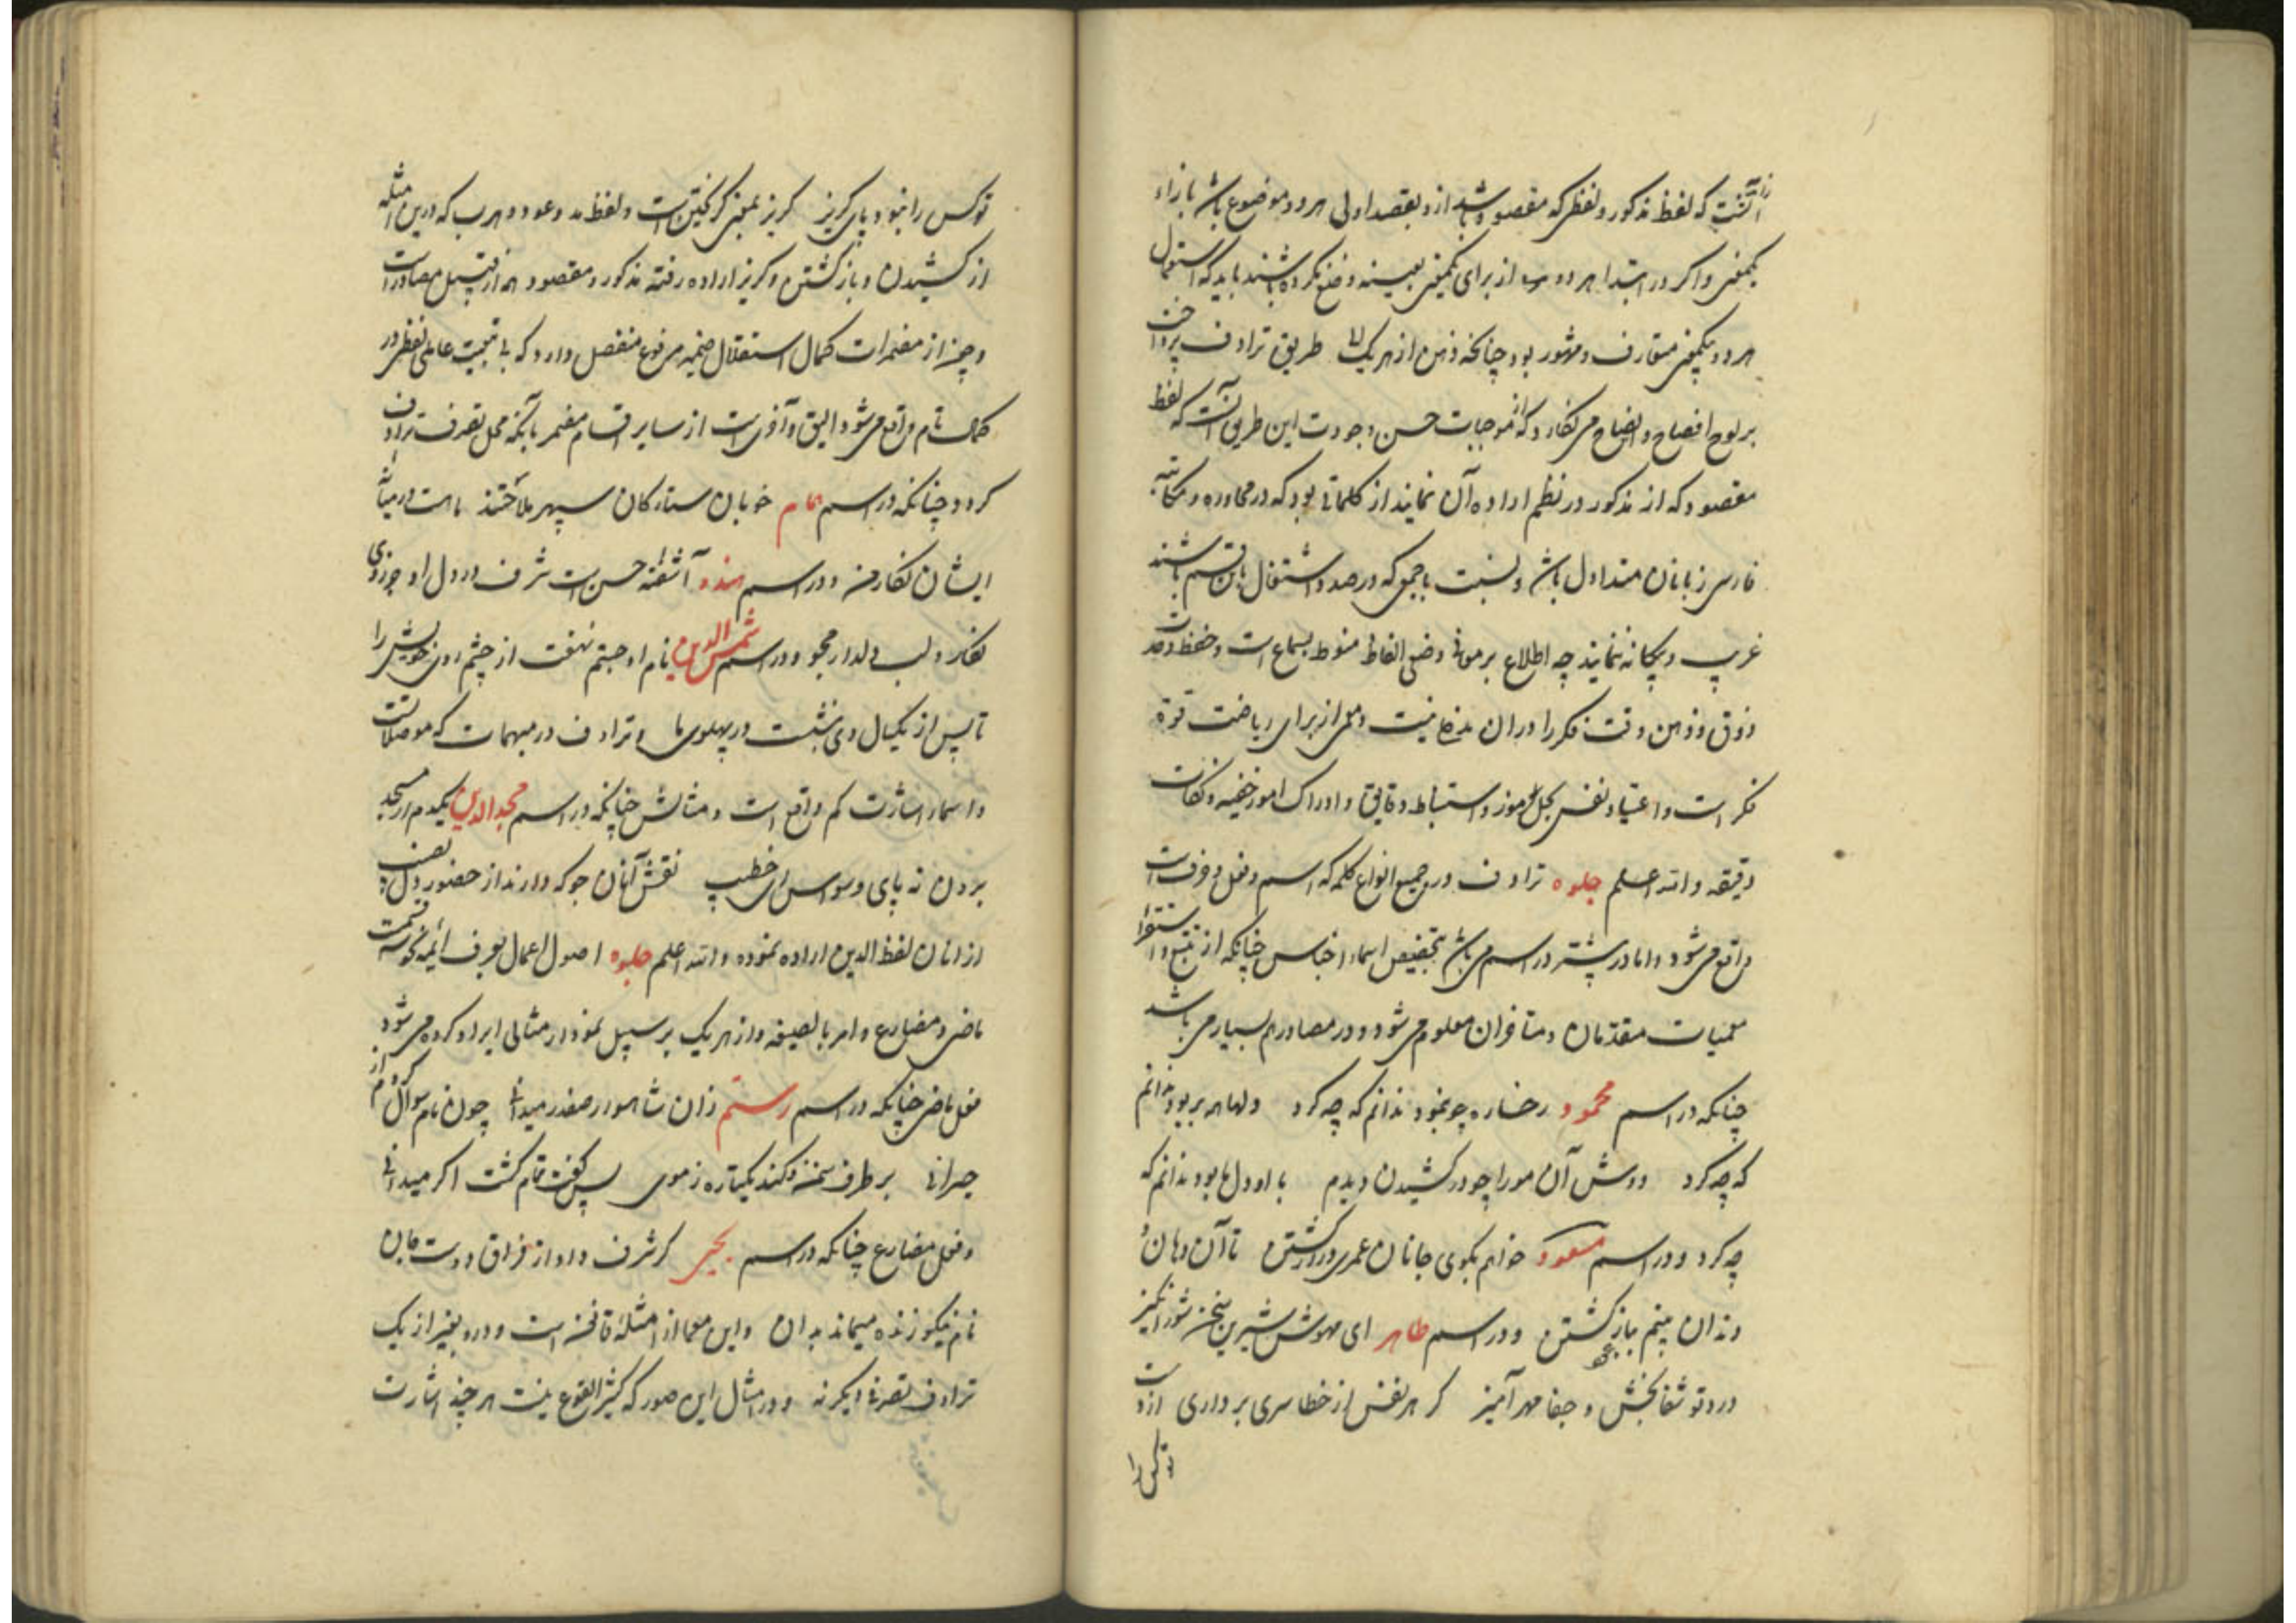 آنست که لفظ مذکور و لفظی که مقصود باشد ازو بقصد اولی هر دو موضوع باشد بازاء
یکمعنی و اکر در ابتدا هر دو از برای یکمعنی بعینه وضع نکرده باشند باید که استعمال
هر دو بیکمعنی متعارف و مشهور بود چنانکه ذهن از هر یک طریق ترادف
بر لوح افصاح و ایضاح می نکارد و از موجبات حسن و جودت این طریق آنست که لفظ
مقصود که از مذکور در نظم اراده آن نمایند از کلماتی بود که در محاوره و مکاتبه
فارسی زبانان متداول باشد و نسبت با جمعی که در صدد اشتغال باین قسم باشند
غریب و بیکانه ننماید چه اطلاع بر وضع الفاظ منوط بسماع است و حفظ و
ذوق و ذهن و دقت فکر را در ان مدخلی نیست و معمی از برای ریاضت قوة
فکر است و اعتیاد نفس بحل رموز و استنباط دقایق و ادراک امور خفیه و نکات
دقیقه والله اعلم جلوه ترادف در جمیع انواع کلمه که اسم و فعل و حرف است
واقع می شود و اما در بیشتر در اسم می باشد بتخصیص اسماء اجناس چنانکه از تتبع و استقراء
معمیات متقدمان و متاخران معلوم می شود و در مصادر هم بسیار می باشد
چنانکه در اسم محمود رخساره چو نمود ندانم که چه کرد دلها همه بربود ندانم
که چه کرد دوش آن مو را چو در کشیدن دیدم با او دل ما بود ندانم که
چه کرد و در اسم مسعود خواهم بکوی جانان عمری در کشتن تا آن دهان و
دندان بینم بباز کشتن و در اسم طاهر ای مهوش شیرین سخن شورانکیز
درد تو شفابخش و جفا مهر آمیز کر هر نفس از خطا سری برداری از دست
تو کس را
تو کس را نبود پای کریز کریز بمعنی کریختن است و لفظ مد و عود و هرب که درین امثله
از کشیدن و باز کشتن و کریز اراده رفته مذکور و مقصود هم از قبیل مصادر است
و چون از مضمرات کمال استقلال ضمیر مرفوع منفصل دارد که بی تبعیت عامل لفظی در
کلام تام واقع می شود الیق و آخری است از سایر اقسام مضمر بآنکه محل تصرف ترادف
کردد چنانکه در اسم همام خوبان ستارکان سپهر ملاحتند ماهست در میانه
ایشان نکار من و در اسم هندو آشفته حسن است شرف در دل او جز روی
نکار و لب دلدار مجو و در اسم شمس الدین نام او جستم نهفت از چشم من خویش را
تا پس از یکسال دی بنشست در پهلوی ما و ترادف در مبهمات که موصولات
و اسماء اشارت کم واقع است و مثالش چنانکه در اسم مجد الدین یکدم از مسجد
برون نه پای وسواس ای خطیب نقش آنان جو که دارند از حضور دل نصیب
از انان لفظ الدین اراده نموده والله اعلم جلوه اصول اعمال بعرف ایمه نحو سه قسمست
ماضی و مضارع و امر بالصیغه و از هر یک بر سبیل نمودار مثالی ایراد کرده می شود
فعل ماضی چنانکه در اسم رستم زان شاهسوار صفدر میدانی چون نام سوال کردم از
حیرانی بر طرف سمن فکند یکتاره ز موی پس کفت تمام کشت اکر میدانی
و فعل مضارع چنانکه در اسم یحیی کر شرف داد از فراق دوست جان
نام نیکو زنده میماند بدان و این معما از امثله فاتحه است و درو بغیر از یک
ترادف تصرفی دیکر نه و در امثال این صور که کثیر الوقوع نیست هر چند اشارت